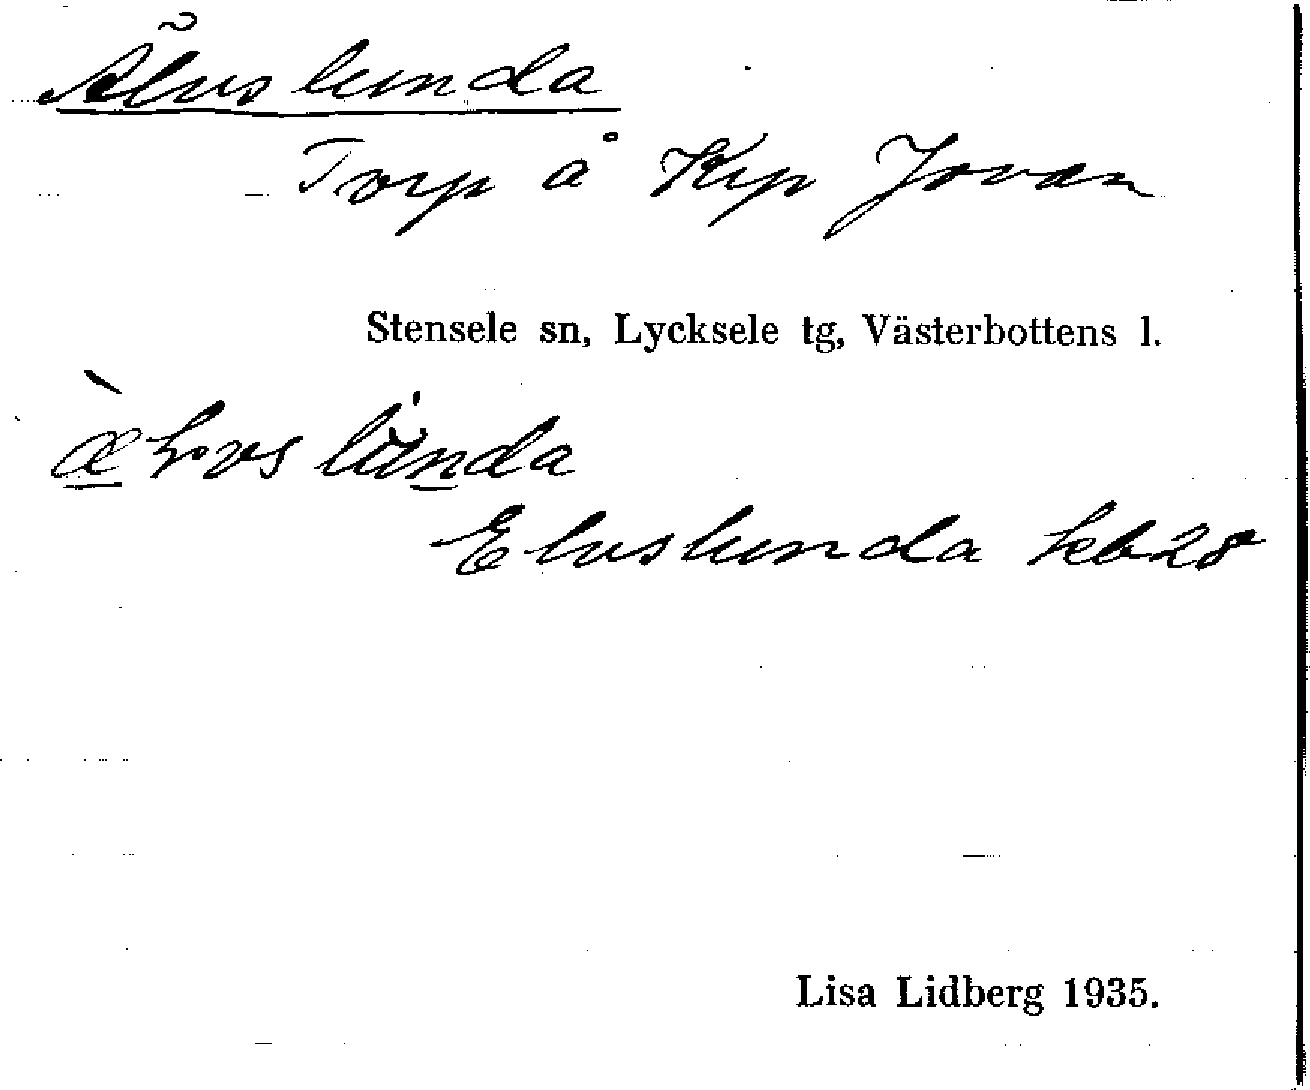 Älvslunda
Torp å Krp Jovan
Stensele sn, Lycksele tg, Västerbottens l.
Elvslunda kb28
Lisa Lidberg 1935.